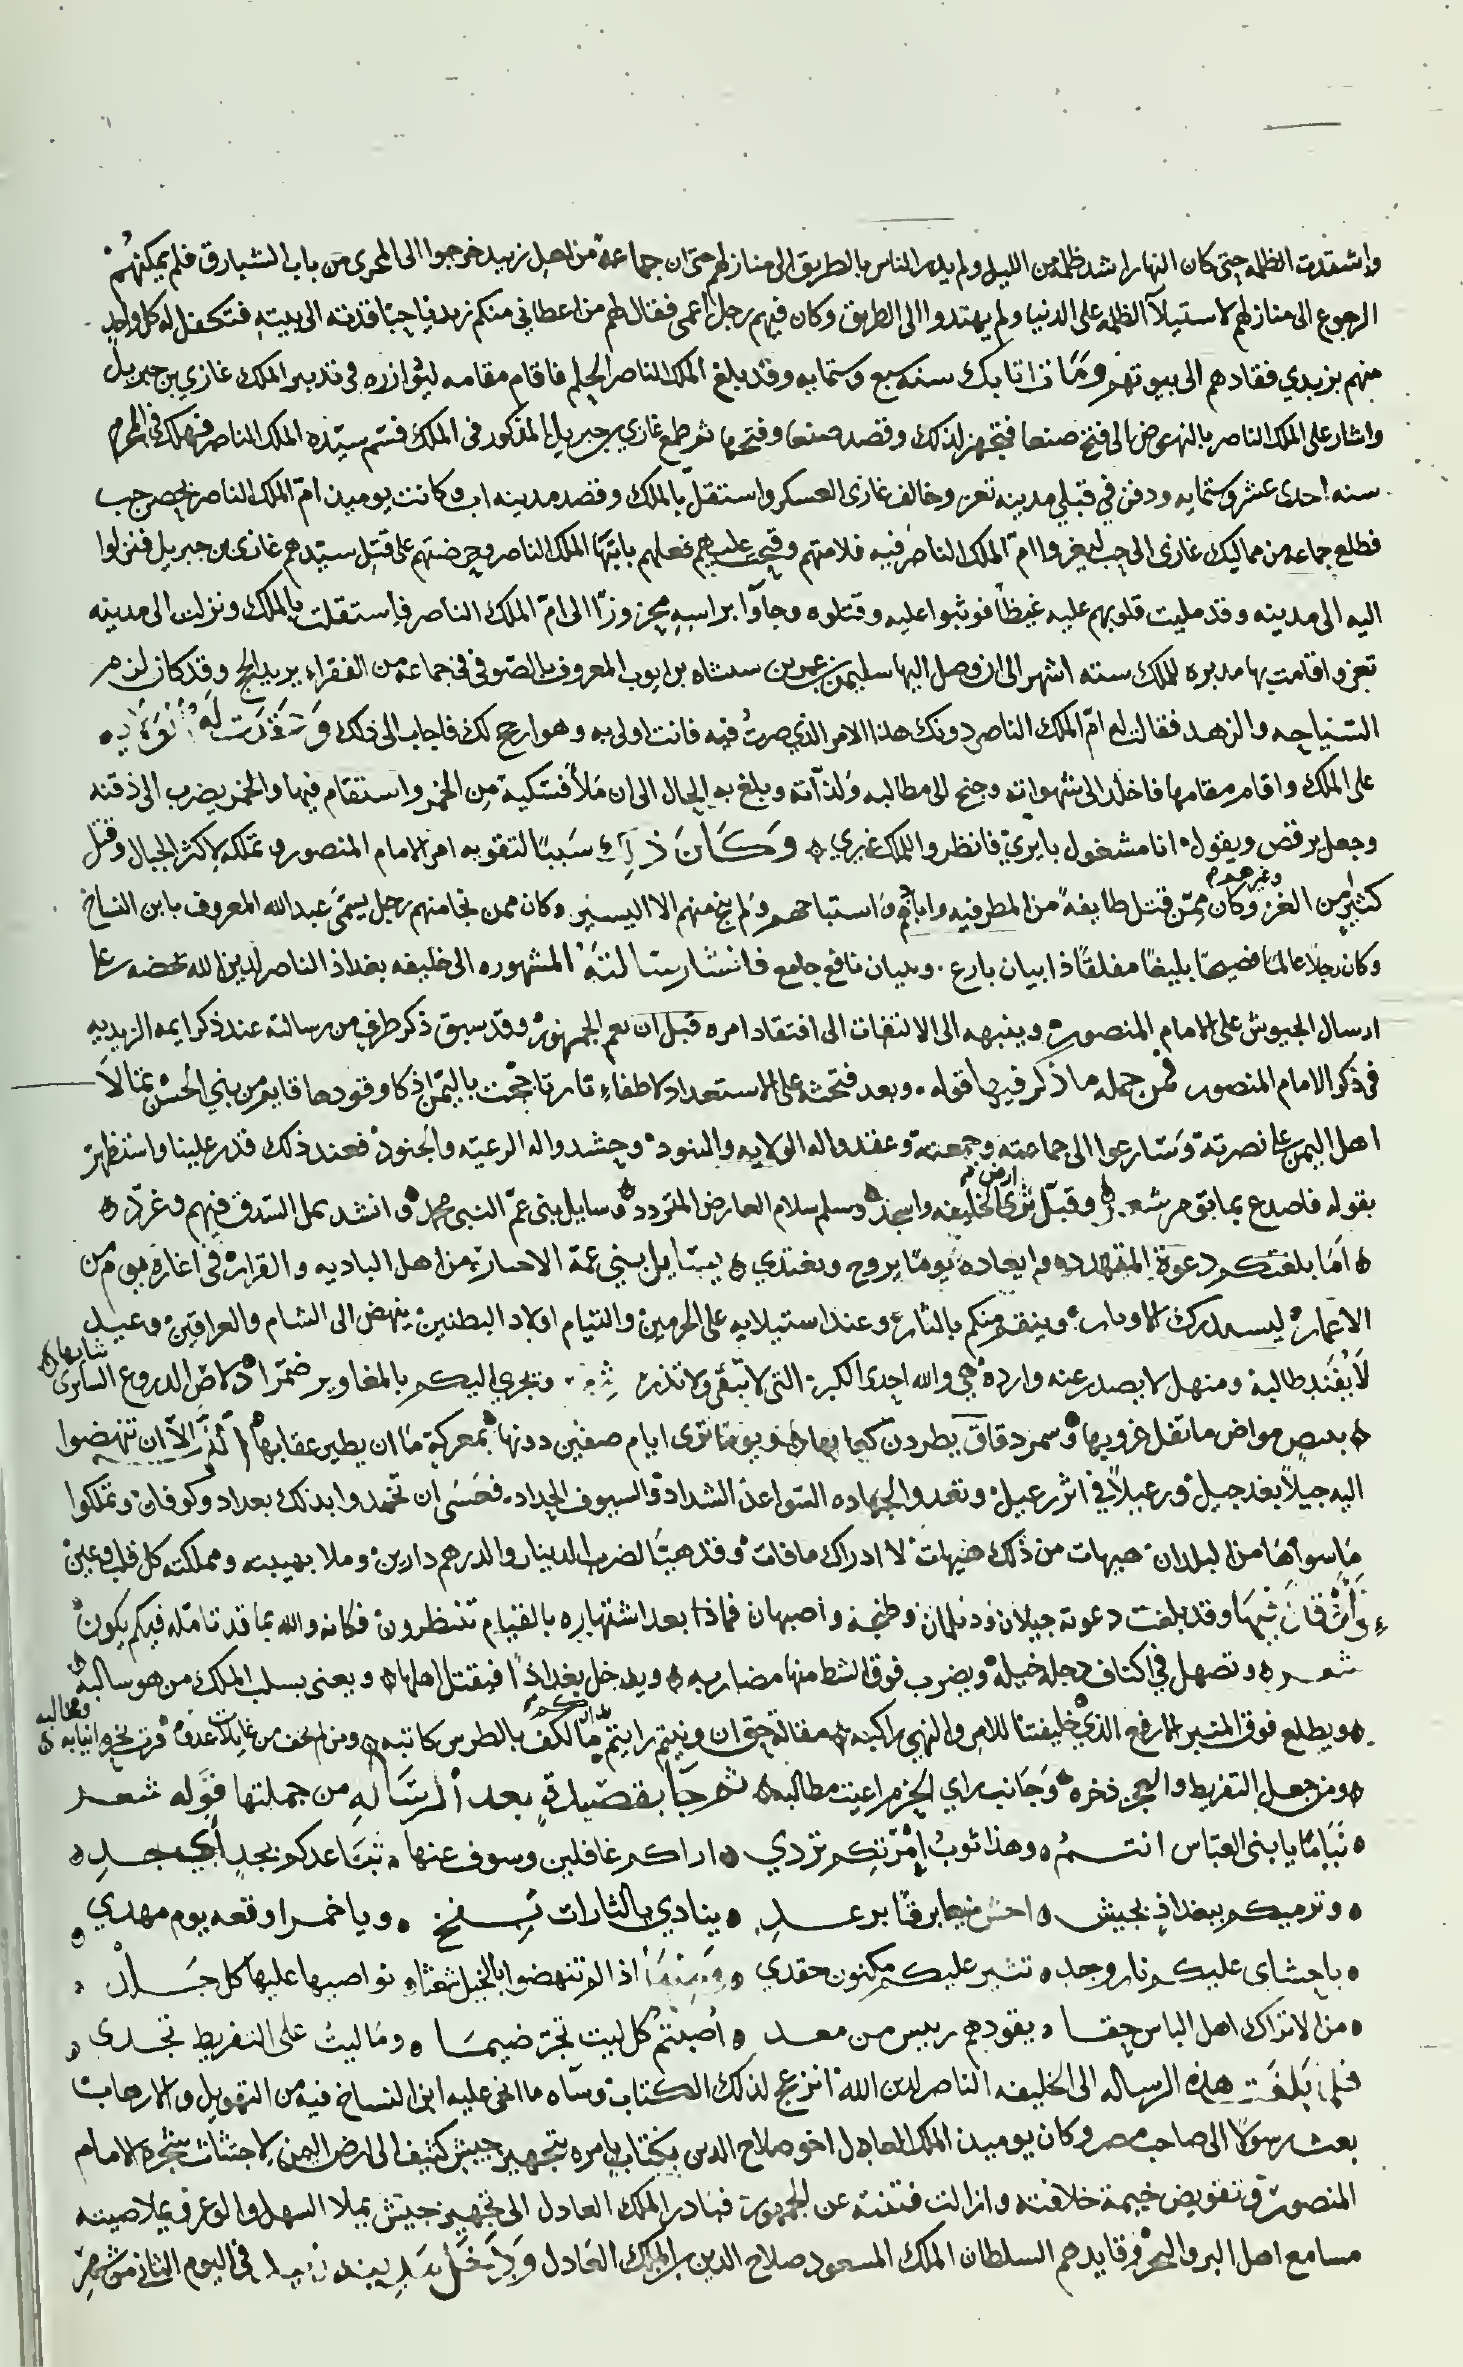 واشتدت الظلمه حتى كان النهار اشد ظلمه من الليل ولم يدر الناس بالطريق الى منازلهم حتى ان جماعة من اهل زبيد خرجوا الى المجرى من باب الشبارق فلم يمكنهم
الرجوع الى منازلهم لاستيلآ الظلمه على الدنيا ولم يهتدوا الى الطريق وكان فيهم رجل اعمى فقال لهم من اعطاني منكم زبديا حبا قدته الى بيته فتكفل له كل واحد
منهم بزبدي فقادهم الى بيوتهم ومات اتابك سنه سبع وستمايه وقد بلغ الملك الناصر الحلم فاقام مقامه ليوازره في تدبير الملك غازي بن جبريل
واشار على الملك الناصر بالنهوض الى فتح صنعا فتجهز لذلك وقصد صنعا وفتحها ثم طمع غازي بن جبريل المذكور فى الملك فسم سيده الملك الناصر فهلك في المحرم
سنه احدى عشر وستمايه ودفن في قبلي مدينه تعز وخالف غازى العسكر واستقل بالملك وقصد مدينه اب وكانت يوميذ امّ الملك الناصر بحصن حب
فطلع جماعه من مماليك غازى الى حب ليعزوا امّ الملك الناصر فيه فلامتهم وقبحت عليهم فعلهم بابنها الملك الناصر وحرضتهم على قتل سيدهم غازى بن جبريل فنزلوا
اليه الى مدينه وقد مليت قلوبهم عليه غيظاً فوثبوا عليه وقتلوه وجاآوا براسه محزوزا الى امّ الملك الناصر فاستقلت بالملك ونزلت الى مدينه
تعز واقامت بها مدبره للملك سته اشهر الى ان وصل اليها سليمن بن عمر بن سنشاه بن ايوب المعروف بالصوفى في جماعة من الفقراء يريد الحج وقد كان لزم
السياحه والزهد فقالت له امّ الملك الناصر دونك هذا الامر الذي صرتُ فيه فانت اولى به وهو ارجح لك فاجاب الى ذلك
على الملك واقام مقامها فاخلد الى شهواته وجنح الى مطالبه ولذاته وبلغ به الحال الى ان ملأ فسكية من الخمر واستقام فيها والخمر يضرب الى ذقنه
وجعل يرقص ويقول انا مشغول بايري فانظروا للملك غيري وكان ذلك سببا لتقويه امر الامام المنصور وتملكه لاكثر الجبال وقتل
كثير من الغز وغيرهم وكان ممن قتل طايفة من المطرفيه واباحهم واستباحهم ولم ينج منهم الا اليسير وكان ممن نجا منهم رجل يسمى عبدالله المعروف بابن النساخ
وكان رجلا عالما فصيحا بليغا مفلقا ذا بيان بارع وبنيان نافع جامع فانشا رسالته المشهوره الى خليفه بغداذ الناصر لدين الله يحضه على
ارسال الجيوش على الامام المنصور وينبهه الى الالتفات الى افتقاد امره قبل ان يعم الجمهور وقد سبق ذكر طرف من رسالته عند ذكر ايمه الزيديه
فى ذكر الامام المنصور فمن جمله ما ذكر فيها قوله وبعد فتحث على الاستعداد لاطفاء نار تاججت باليمن اذكا وقودها قايم من بني الحسن تمالأ
اهل اليمن على نصرته وسارعوا الى جماعته وجمعته وعقدوا له الولايه والبنود وحشدوا له الرعيه والجنود فعند ذلك قدر علينا واستظهر
بقوله فاصدع بما تومر شعر وقبّل ثرى ارض الخليفه واسجد وسلم سلام العارض المتردد وسايل بني عمّ النبي محمد وانشد بمل الشدق فيهم وغرّد
اما بلغتكم دعوة المتهدد وايعاده يوما يروح ويغتدي يسايل بني عمه الاحساب من اهل الباديه والقرار في اغاره يوم من
الاعمار ليستدرك الاوتار وينتقم منكم بالثار وعند استيلايه على الحرمين والتيام اولاد البطنين ينهض الى الشام والعراقين وعيد
لا يُفَنّد طالبه ومنهل لا يصدر عنه وارده هي والله احدى الكبر التي لا تبقى ولا تذر شعر وتجري اليكم بالمغاوير ضمّرا دلاص الدروع السابرى ثيابها
ببيض مواض ما تفل غروبها وسمر دقاق يطردن كعابها ويوما ترى ايام صفين دونها بمعركة ما ان يطير عقابها الا ان تنهضوا
اليه جيلا بعد جيل ورعيلا في اثر رعيل وتعدوا لجهاده السواعد الشداد والسيوف الحداد فعسى ان تخمدوا بذلك بغداد وكوفان وتملكوا
ما سواها من البلدان هيهات من ذلك هيهات لا ادراك ما فات وقد هيا لضرب الدينار والدرهم دارين وملا بهيبته ومملكته كل قلب وعين
وقد بلغت دعوته جيلان وديلمان وطنجه واصبهان فماذا بعد اشتهاره بالقيام تنتظرون فكانه والله بما قد تامله فيكم يكون
شعر وتصهل في اكناف دجله خيله ويضرب فوق الشط منها مضاربه ويدخل بغداذا فيقتل اهلها ويعنى بسلب الملك من هو سالبه
ويطلع فوق المنبر الارفع الذي خليفتنا للامر والنهي راكبه مقالة حق ان ونيتم رايتم بالكف بالطرس كاتبه ومن لم يخف من غايلات عدوه فرت نحره انيابه ومخالبه
ومن جعل التفريط والعجز ذخره وجانب راي الحزم اعيت مطالبه ثم جا بقصيدة بعد الرساله من جملتها قوله شعر
نياما يا بني العباس انتم وهذا ثوبُ امرتكم تردي اراكم غافلين وسوف عنها تباعدكم بجد اي جد
وترميكم ببغداذ بجيش احش برقا برعد ينادي يالثارات بفخ ويا خمرا وقعه يوم مهدي
باحشاى عليكم نار وجد تثير عليكم مكنون حقدي ومنها اذا لم تنهضوا بالخيل شعثا نواصيها عليها كل جلد
من الاتراك اهل الباس حقا يقودهم رييس من معد اصبتم كل ليث تجر ضيما وما ليث على التفريط تجدى
فلما بلغت هذه الرساله الى الخليفه الناصر لدين الله انزعج لذلك الكتاب وساه ما انهى عليه ابن النساخ فيه من التهويل والارجاف
بعث رسولا الى صاحب مصر وكان يوميذ الملك العادل اخو صلاح الدين بكتاب يامره بتجهيز جيش كثيف الى ارض اليمن لاجتثاث شجره الامام
المنصور وتقويض خيمة خلافته وازالت فتنته عن الجمهور فبادر الملك العادل الى تجهيز جيش يملا السهل والوعر ويملا صيته
مسامع اهل البر والبحر وقايدهم السلطان الملك المسعود صلاح الدين بن الملك العادل ودخل مدينه زبيد في اليوم الثاني من شهر